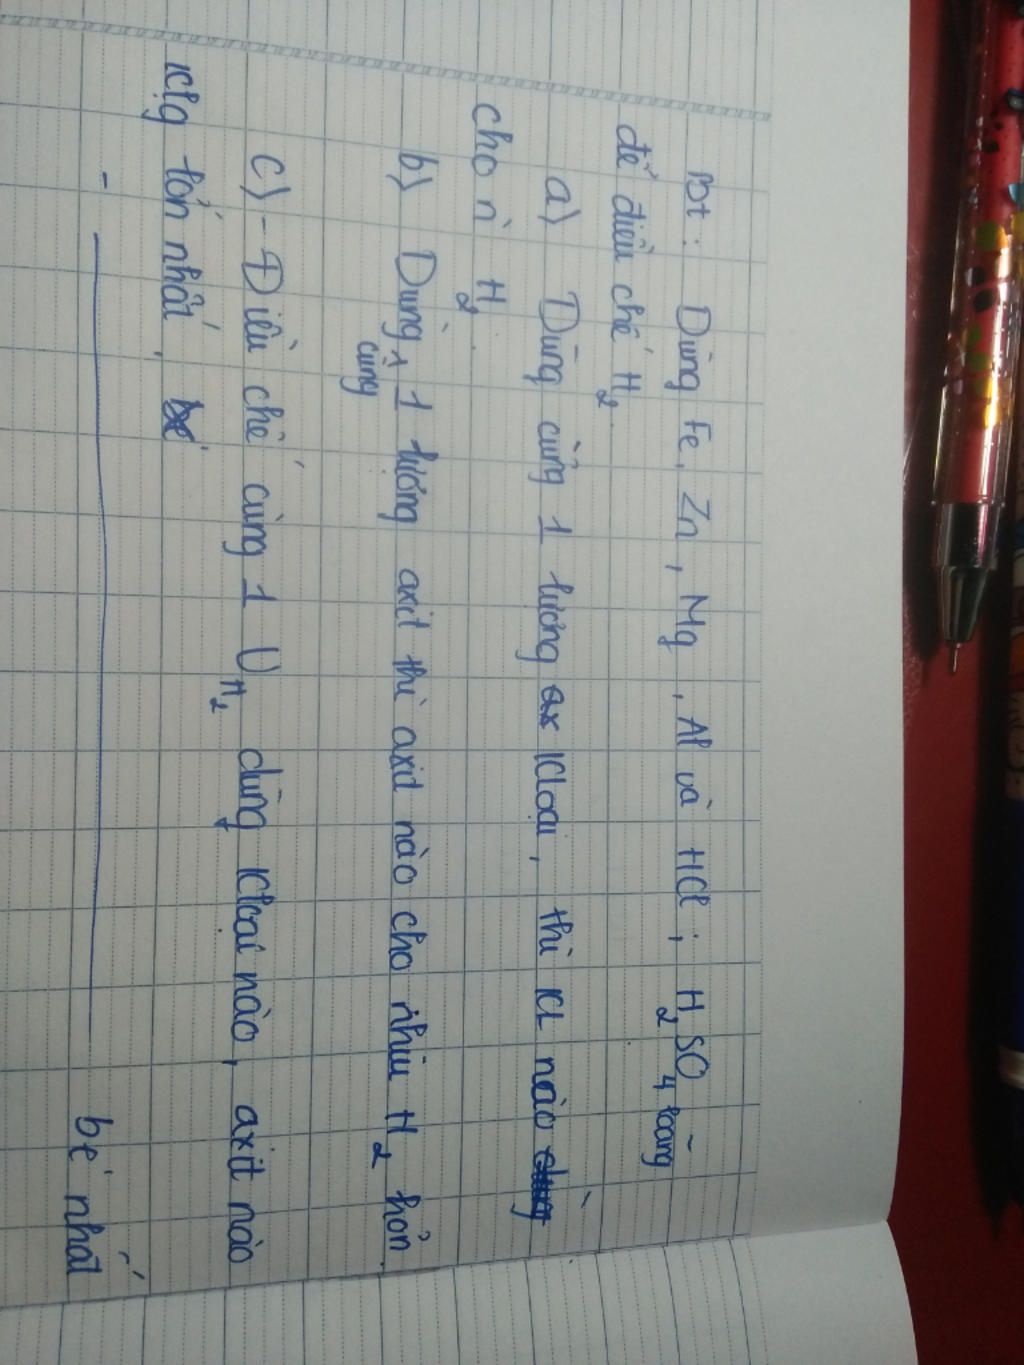 Bt: Dùng Fe, Zn, Mg, Al và HCl; H2SO4 loãng
để điều chế H2
a) Dùng cùng 1 lượng kloại, thì KL nào
cho n` H2.
b) Dùng cùng 1 lượng axit thì axit nào cho nhìu H2 hơn
c) - Điều chế cùng 1 VH2 dùng kloai nào, axit nào
klg lớn nhất,
- ____________ bé nhất